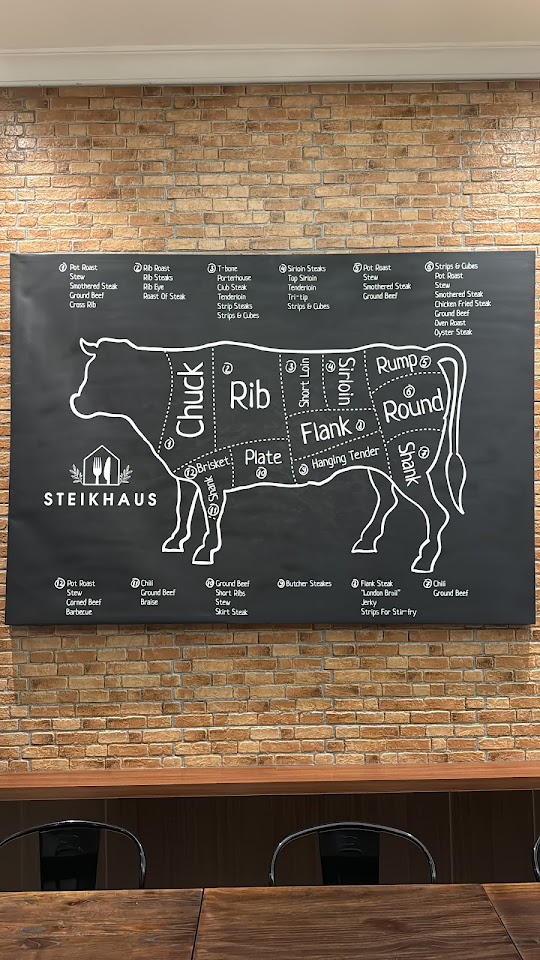 ① Pot Roast
Stew
Smothered Steak
Ground Beef
Cross Rib
② Rib Roast
Rib Steaks
Rib Eye
Roast Of Steak
③ T-bone
Porterhouse
Club Steak
Tenderloin
Strip Steaks
Strips & Cubes
④ Sirloin Steaks
Top Sirloin
Tenderloin
Tri-tip
Strips & Cubes
⑤ Pot Roast
Stew
Smothered Steak
Ground Beef
⑥ Strips & Cubes
Pot Roast
Stew
Smothered Steak
Chicken Fried Steak
Ground Beef
Oven Roast
Oyster Steak
Chuck
②
Rib
③
Short Loin
④
Sirloin
Rump ⑤
⑥
Round
Flank
Shank ⑦
⑫ Brisket
Plate
⑩
⑨ Hanging Tender
Shank
⑪
STEIKHAUS
⑫ Pot Roast
Stew
Corned Beef
Barbecue
⑪ Chili
Ground Beef
Braise
⑩ Ground Beef
Short Ribs
Stew
Skirt Steak
⑨ Butcher Steakes
Flank Steak
"London Broil"
Jerky
Strips For Stir-fry
⑦ Chili
Ground Beef